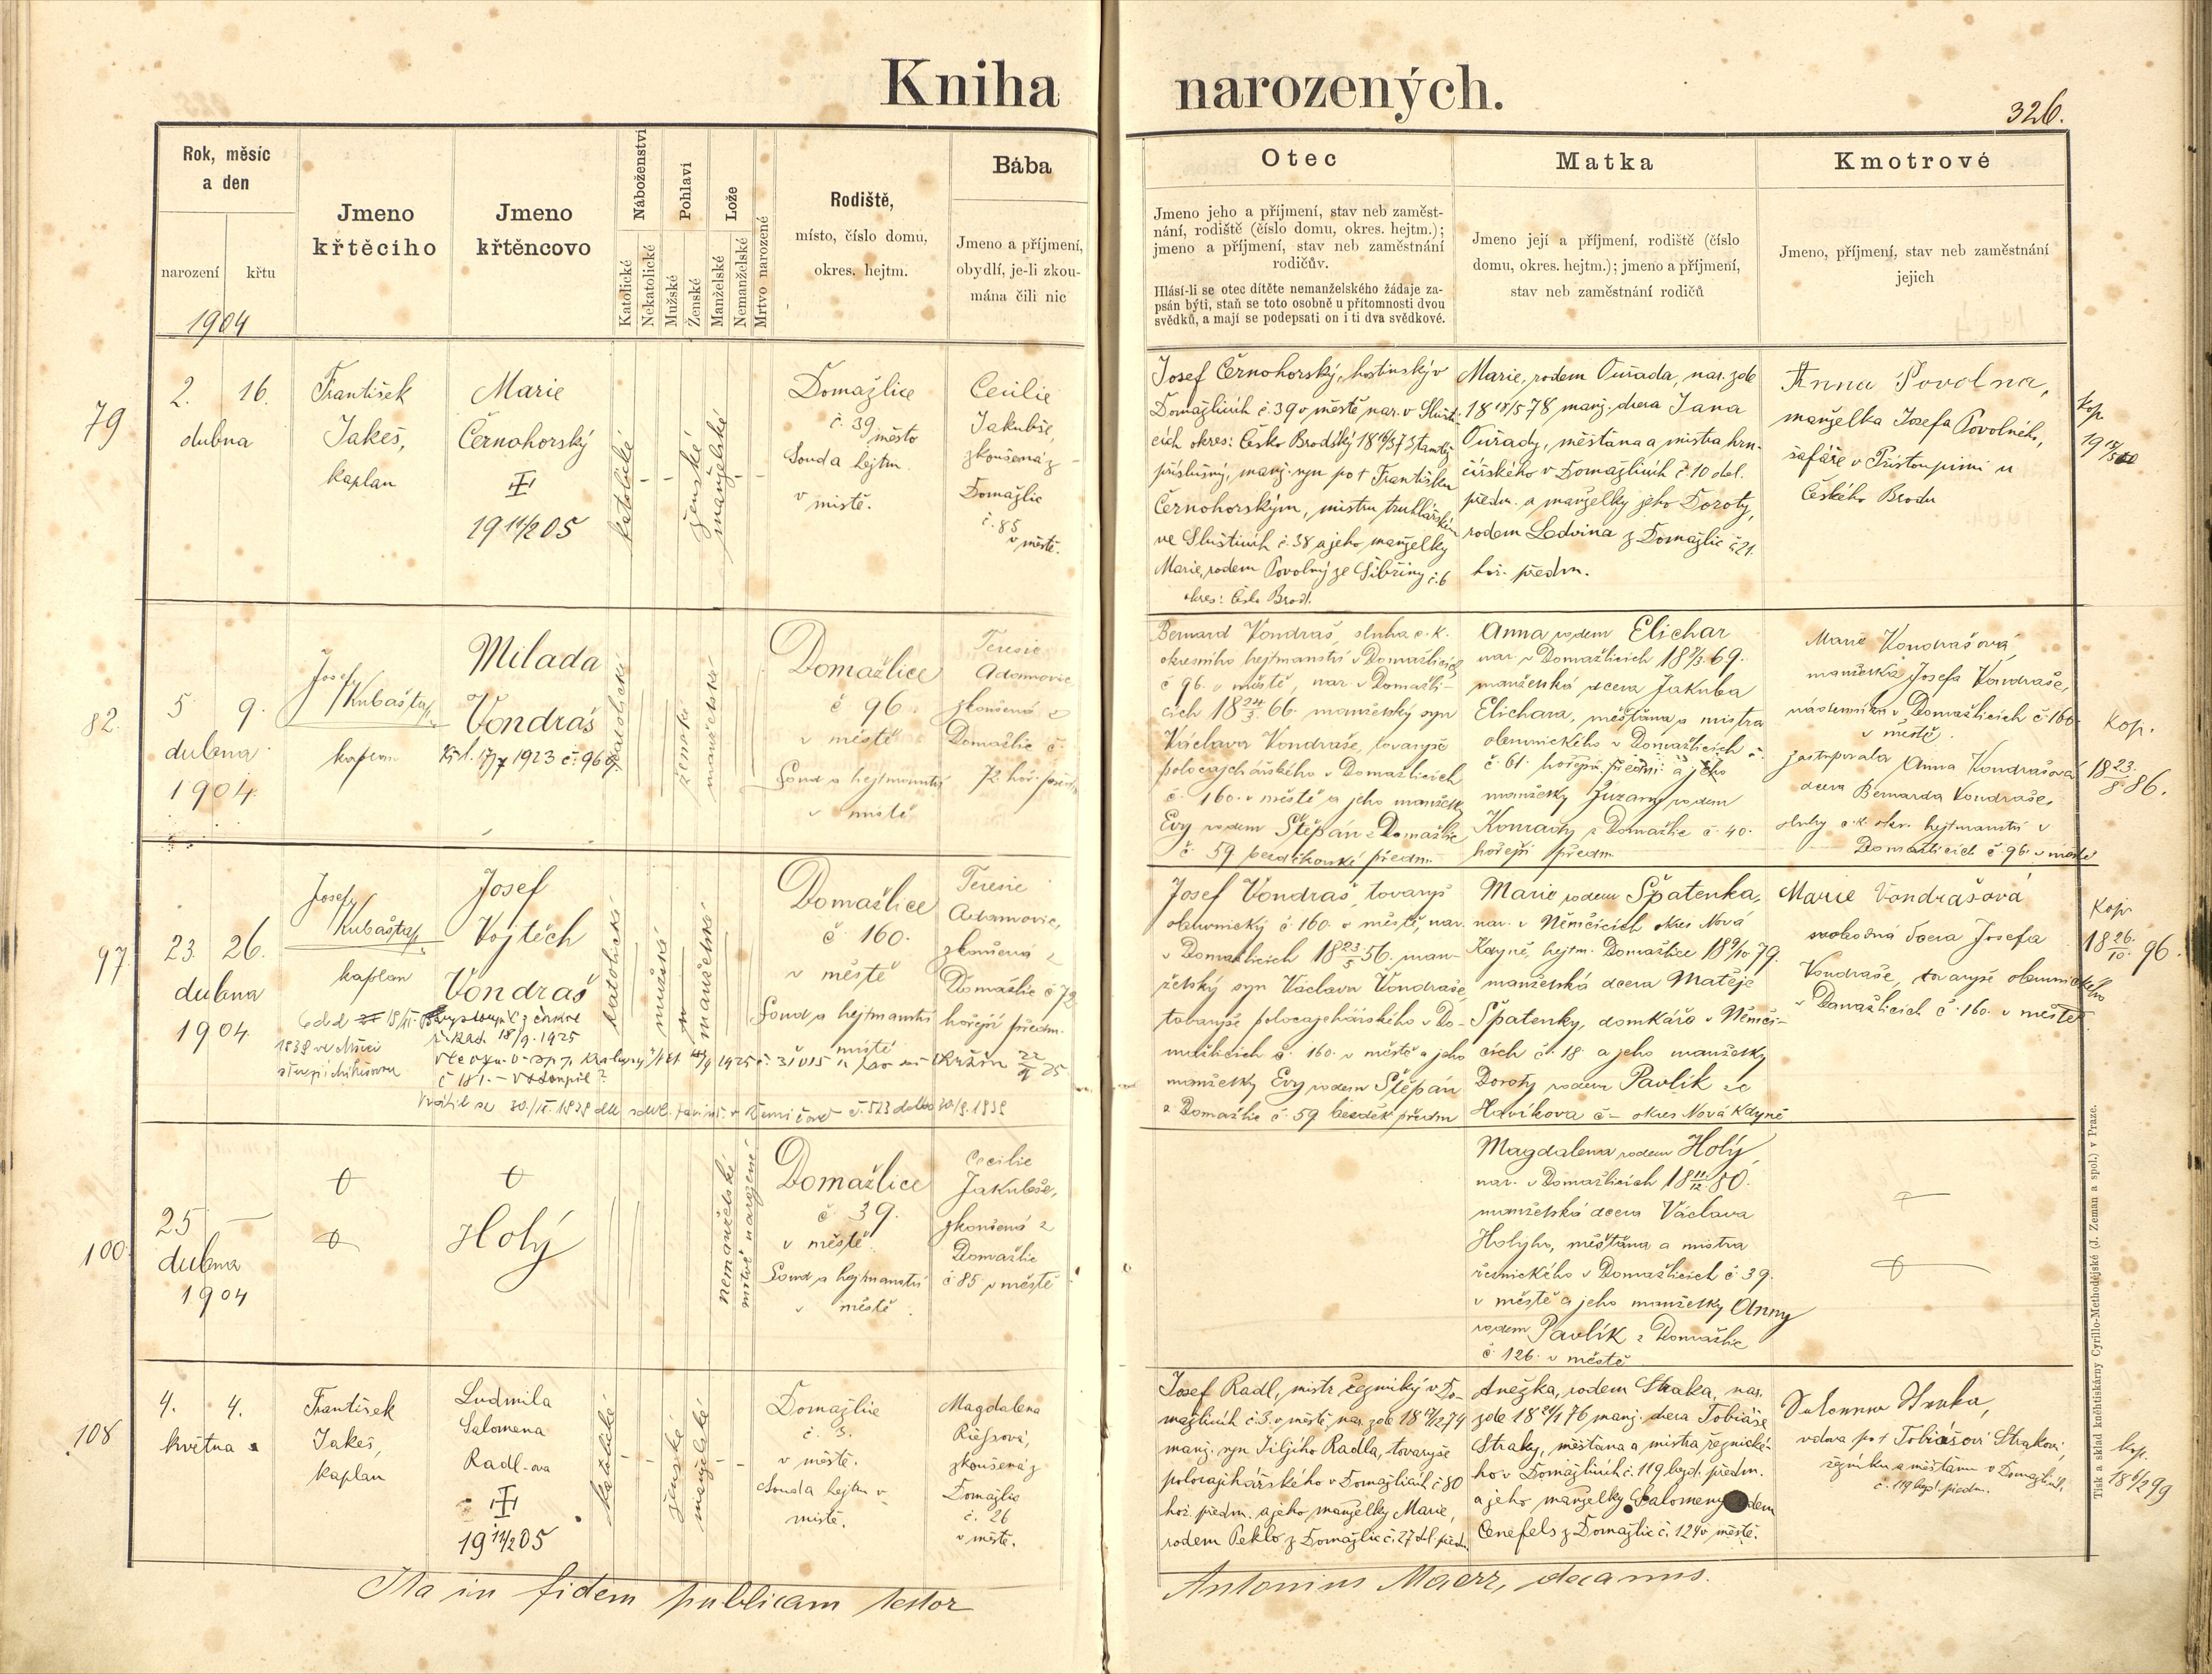 Kniha narozených.
326.
Rok, měsíc
a den
narození
křtu
1904
Jmeno
křtěcího
Jmeno
křtěncovo
Náboženství
Katolické
Nekatolické
Pohlaví
Mužské
Ženské
Lože
Manželské
Nemanželské
Mrtvo narozené
Rodiště,
místo, číslo domu,
okres. hejtm.
Bába
Jmeno a příjmení,
obydlí, je-li zkou-
mána čili nic
Otec
Jmeno jeho a příjmení, stav neb zaměst-
nání, rodiště (číslo domu, okres. hejtm.);
jmeno a příjmení, stav neb zaměstnání
rodičův.
Hlásí-li se otec dítěte nemanželského žádaje za-
psán býti, staň se toto osobně u přítomnosti dvou
svědků, a mají se podepsati on i ti dva svědkové.
Matka
Jmeno její a příjmení, rodiště (číslo
domu, okres. hejtm.); jmeno a příjmení,
stav neb zaměstnání rodičů
Kmotrové
Jmeno, příjmení, stav neb zaměstnání
jejich
79
2. 16.
dubna
František
Jakeš,
kaplan
Marie
Černohorský
19 11/2 05
katolické
ženské
manželské
Domažlice
č. 39 město
Soud a hejtm.
v místě.
Cecilie
Jakubše,
zkoušená z
Domažlic
č. 85
v městě.
Josef Černohorský, hostinský v
Domažlicích č. 39 v městě nar. v Slušti-
cích okres: Česko Brodský 18 19/3 73 tamtéž
příslušný, manž. syn po † Františku
Černohorským, mistru truhlářském
ve Sluštících č. 38 a jeho manželky
Marie, rodem Povolný ze Sibřiny č. 6
okres: Česk. Brod.
Marie, rodem Ouřada, nar. zde
18 18/5 78 manž. dcera Jana
Ouřady, měšťana a mistra hrn-
čířského v Domažlicích č. 10 dol.
předm. a manželky jeho Doroty,
rodem Ledvina z Domažlic č. 21.
hoř. předm.
Anna Povolna,
manželka Josefa Povolného,
šafáře v Přistoupimi u
Českého Brodu
kop.
82.
5 9.
dubna
1904.
Josef
Kubašta
kaplan
Milada
Vondraš
katolické
ženské
manželské
Domažlice
č 96
v městě
Soud a hejtmanství
v místě
Teresie
Adamovic,
zkoušená z
Domažlic č
72 hoř. předm.
Bernard Vondraš, sluha c. k.
okresního hejtmanství v Domažlicích
č 96. v městě, nar. v Domažli-
cích 18 24/3 66. manželský syn
Václava Vondraše, tovaryše
polocajchářského v Domažlicích
č. 160. v městě a jeho manželky
Evy rodem Štěpán z Domažlic
č. 59 bezděkovské předm.
Anna rodem Elichar
nar. v Domažlicích 18 9/3 69.
manželská dcera Jakuba
Elichara, měšťana a mistra
obuvnického v Domažlicích
č 61. hořejší předm. a jeho
manželky Zuzany rodem
Konrady z Domažlic č. 40.
hořejší předm.
Marie Vondrašová,
manželka Josefa Vondraše,
v Domažlicích č 160
v městě.
zastupovala Anna Vondrašová
dcera Bernarda Vondraše,
sluhy c. k. okr. hejtmanství v
Domažlicích č. 96. v městě
kop.
18 23/8 86.
97
23. 26.
dubna
1904
Josef
Kubašta
kaplan
Josef
Vojtěch
Vondraš
vystoupil z církve
18/9. 1925
katolické
mužské
manželské
Domažlice
č. 160.
v městě
Soud a hejtmanství
v místě
Teresie
Adamovic,
zkoušená z
Domažlic č 72
hořejší předm.
Josef Vondraš, tovaryš
obuvnický č. 160. v městě, nar.
v Domažlicích 18 23/5 56. man-
želský syn Václava Vondraše,
tovaryše polocajchářského v Do-
mažlicích č. 160. v městě a jeho
manželky Evy rodem Štěpán
z Domažlic č. 59 bezděk. předm
Marie rodem Špatenka,
nar. v Němčicích okres Nová
Kdyně, hejtm. Domažlice 18 9/10 79.
manželská dcera Matěje
Špatenky, domkáře v Němči-
cích č. 18. a jeho manželky
Doroty rodem Pavlík ze
Havíkova č – okres Nová Kdyně
Marie Vondrašová
svobodná dcera Josefa
Vondraše, tovaryše obuvnického
v Domažlicích č. 160. v městě
kop.
18 26/10 96.
100.
25 –
dubna
1904
Holý
nemanželské
mrtvě narozené
Domažlice
č. 39.
v městě.
Soud a hejtmanství
v městě.
Cecilie
Jakubše,
zkoušená z
Domažlic
č 85 v městě
Magdalena rodem Holý,
nar. v Domažlicích 18 11/12 80.
manželská dcera Václava
Holýho, měšťana a mistra
řeznického v Domažlicích č. 39.
v městě a jeho manželky Anny
rodem Pavlík z Domažlic
č. 126. v městě
108
4. 4.
května
František
Jakeš,
kaplan
Ludmila
Salomena
Radl-ova
19 11/2 05
katolické
ženské
manželské
Domažlice
č. 3.
v městě.
Souda hejtm v
místě.
Magdalena
zkoušená z
Domažlic
č. 26
v městě.
Josef Radl, mistr řeznický v Do-
mažlicích č. 3. v městě, nar. zde 18 17/12 74
manž. syn Jiljího Radla, tovaryše
polocajchářského v Domažlicích č 80
hoř. předm. a jeho manželky Marie,
rodem Peklo z Domažlic č. 27 dol. předm.
Anežka, rodem Straka, nar.
zde 18 21/1 76 manž. dcera Tobiáše
Straky, měšťana a mistra řeznické-
ho v Domažlicích č. 119 bezd. předm.
a jeho manželky Salomeny rodem
Cenefels z Domažlic č. 124 v městě.
Salomena Straka,
vdova po † Tobiášovi Strakovi,
řezníku a měšťanu v Domažlicích,
č. 119 bezd. předm.
kop.
18 6/2 99
Ita in fidem publicam testor
Antonius Maerz, decanus.
Tisk a sklad kněhtiskárny Cyrillo-Methodějské (J. Zeman a spol.) v Praze.